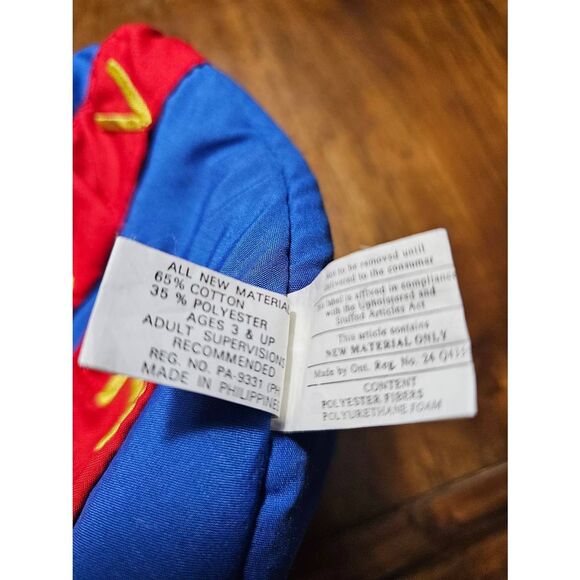 ALL NEW MATERIAL
65% COTTON
35 % POLYESTER
AGES 3 & UP
ADULT SUPERVISION
RECOMMENDED
REG. NO. PA-9331 (PH
MADE IN PHILIPPINE
to be removed until
delivered to the consumer
label is affixed in compliance
with the Upholstered and
Stuffed Articles Act
This article contains
NEW MATERIAL ONLY
Made by Ont. Reg. No. 24
CONTENT
POLYESTER FIBERS
POLYURETHANE FOAM